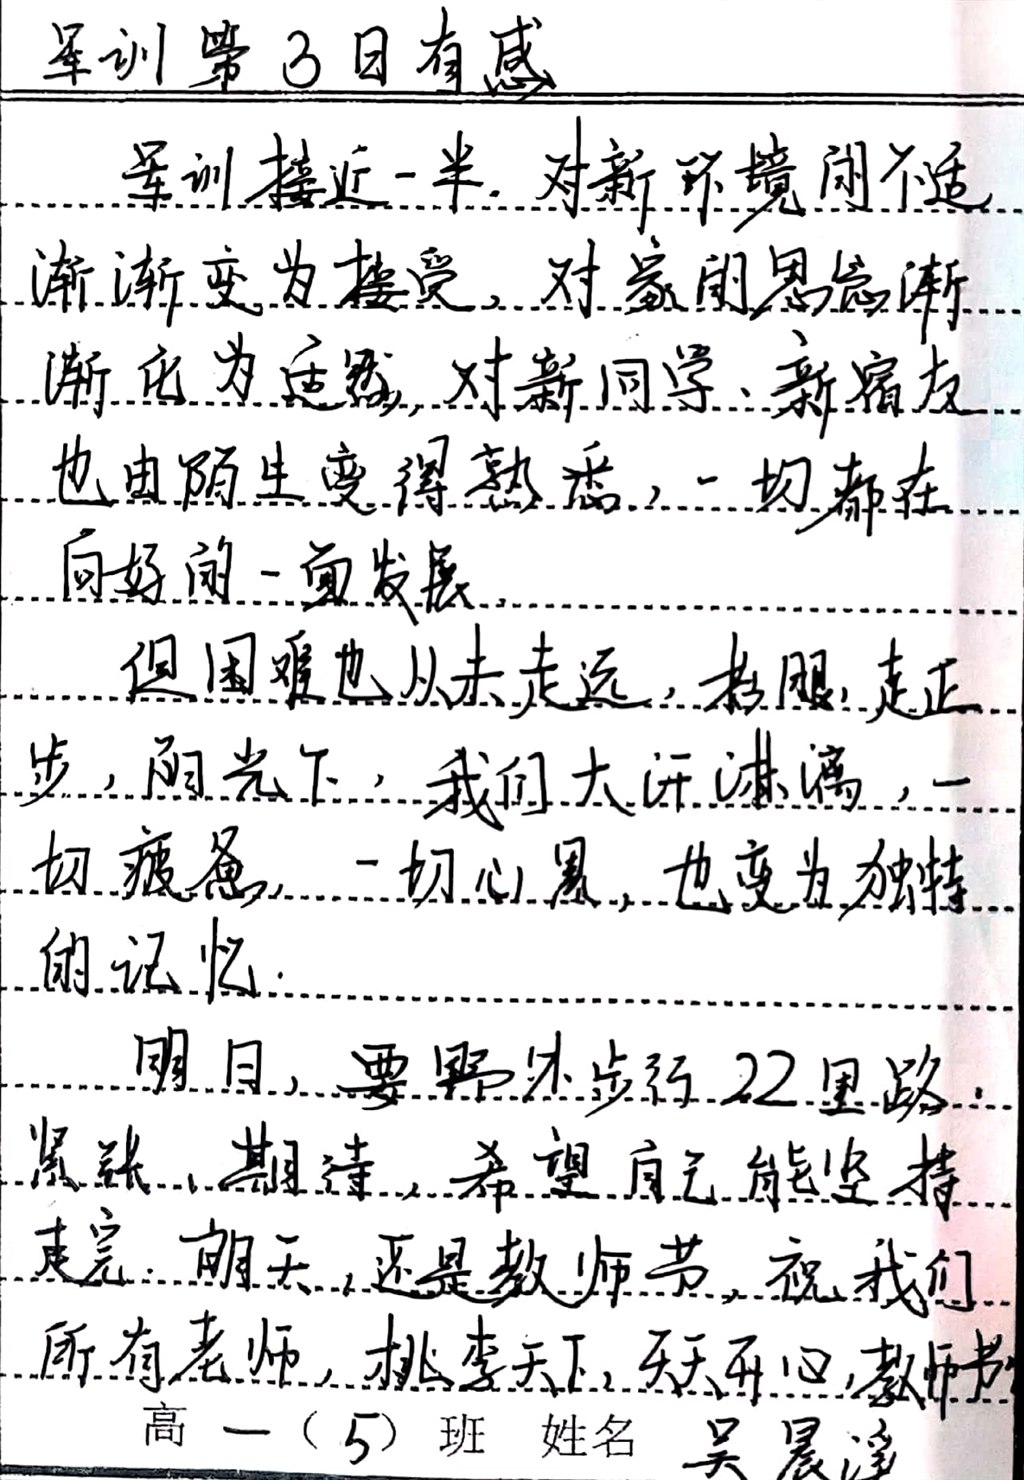 军训第3日有感
军训接近一半.对新环境的不适
渐渐变为接受,对家的思念渐
渐化为适然,对新同学、新宿友
也由陌生变得熟悉,一切都在
向好的一面发展.
但困难也从未走远,拉腿,走正
步,阳光下,我们大汗淋漓,一
切疲惫,一切心累,也变为独特
的记忆.
明日,要野外步行22里路.
紧张、期待,希望自己能坚持
走完.明天,还是教师节,祝我们
所有老师,桃李天下,天天开心,教师节
高一(5)班 姓名 吴晨滢